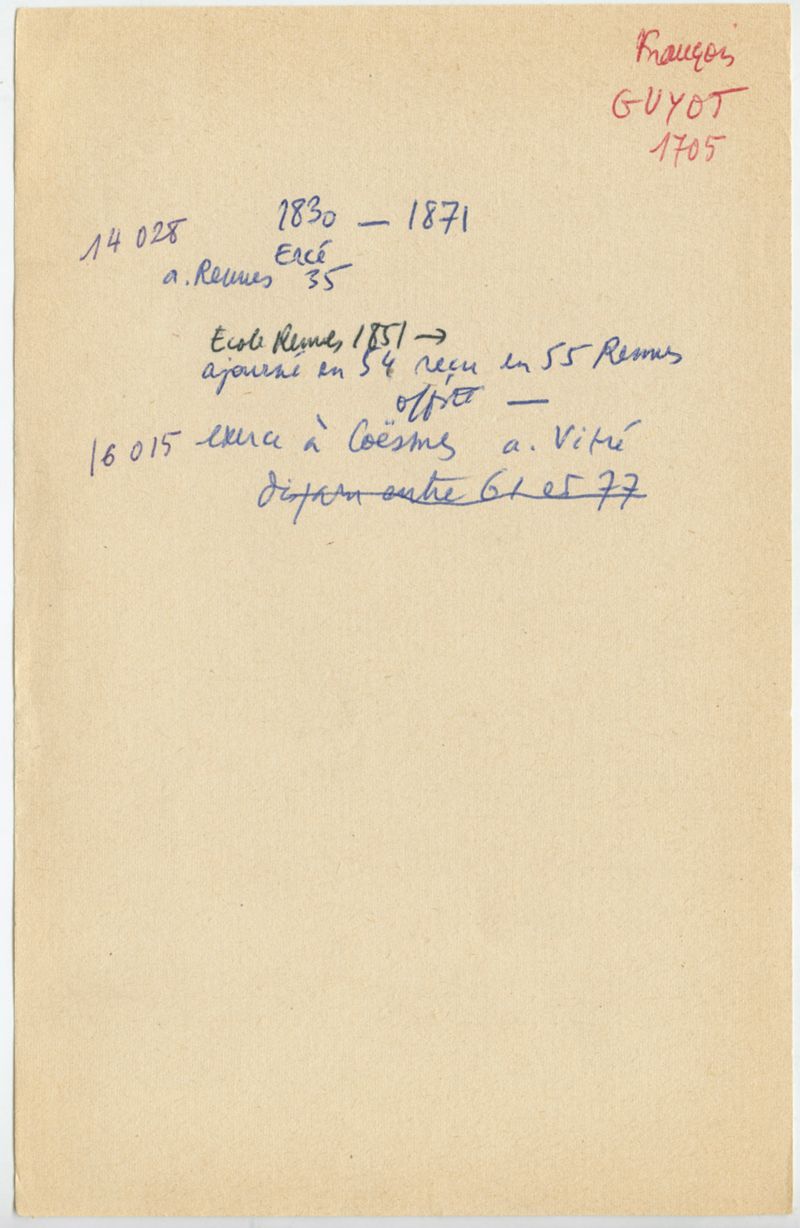 François
GUYOT
1705
14 028 1830 — 1871
Ercé
a. Rennes 35
Ecole Rennes 1851 →
ajourné en 54 reçu en 55 Rennes
—
16 015 exerce à Coësmes a. Vitré
disparu entre 61 et 77